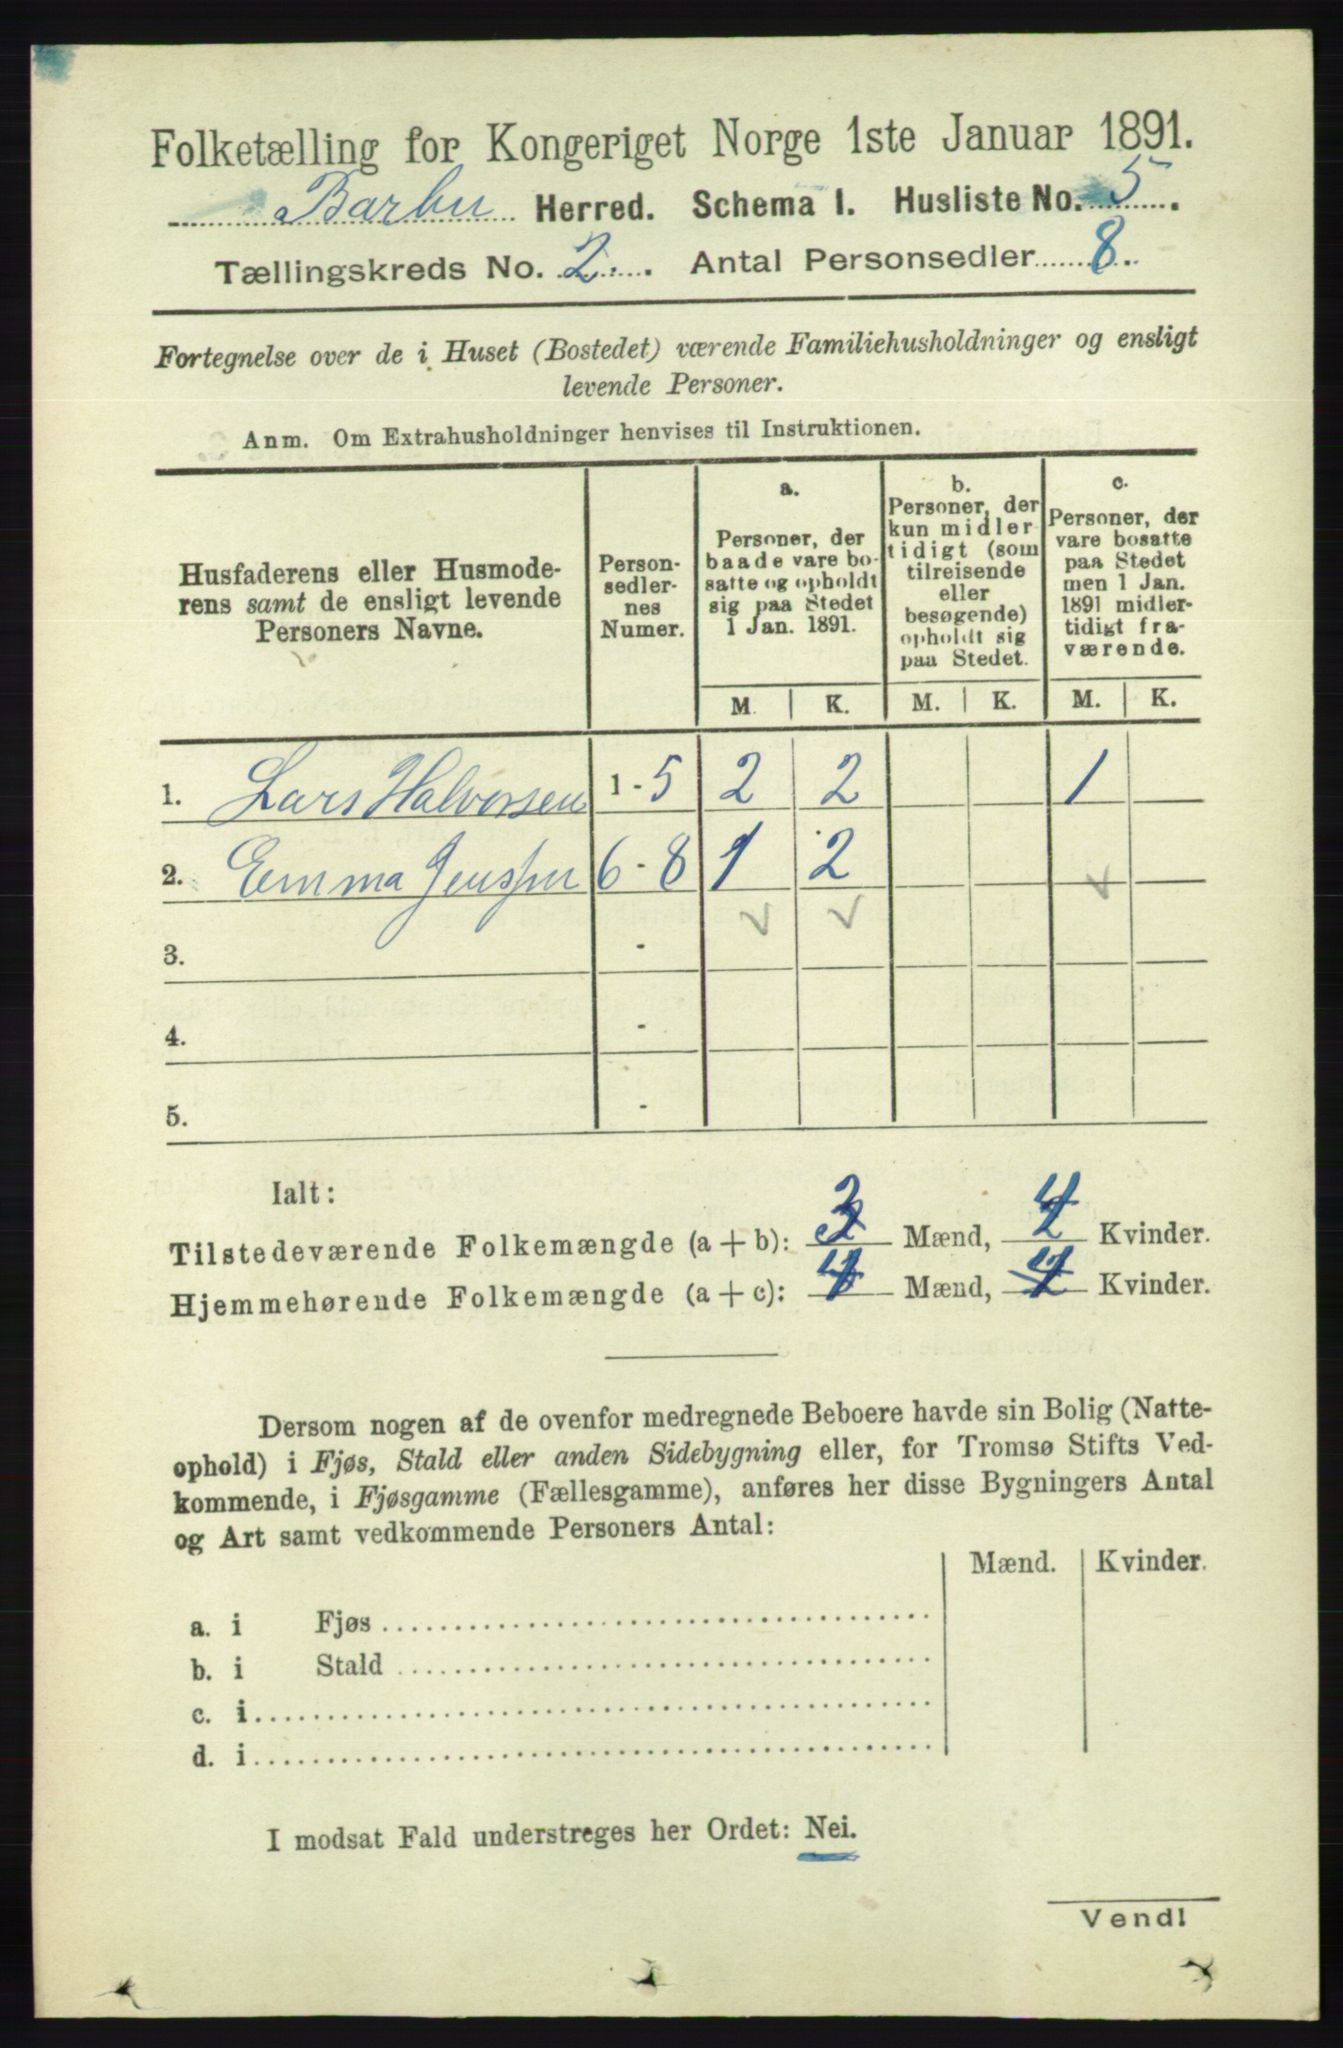 Folketælling for Kongeriget Norge 1ste Januar 1891.
Barbu Herred. Schema I. Husliste No. 5.
Tællingskreds No. 2. Antal Personsedler 8.
Fortegnelse over de i Huset (Bostedet) værende Familiehusholdninger og ensligt
levende Personer.
Anm. Om Extrahusholdninger henvises til Instruktionen.
Husfaderens eller Husmode-
rens samt de ensligt levende
Personers Navne.
Person-
sedler-
nes
Numer.
a.
Personer, der
baade vare bo-
satte og opholdt
sig paa Stedet
1 Jan. 1891.
b.
Personer, der
kun midler
tidigt (som
tilreisende
eller
besøgende)
opholdt sig
paa Stedet.
c.
Personer, der
vare bosatte
paa Stedet
men 1 Jan.
1891 midler-
tidigt fra-
værende.
M. K. M. K. M. K.
1. Lars Halvorsen 1 - 5 2 2 1
2. Emma Jensen 6 - 8 1 2
3. -
4. -
5. -
Ialt:
Tilstedeværende Folkemængde (a + b): 3 Mænd, 4 Kvinder.
Hjemmehørende Folkemængde (a + c): 4 Mænd, 4 Kvinder.
Dersom nogen af de ovenfor medregnede Beboere havde sin Bolig (Natte-
ophold) i Fjøs, Stald eller anden Sidebygning eller, for Tromsø Stifts Ved-
kommende, i Fjøsgamme (Fællesgamme), anføres her disse Bygningers Antal
og Art samt vedkommende Personers Antal:
Mænd. Kvinder.
a. i Fjøs
b. i Stald
c. i
d. i
I modsat Fald understreges her Ordet: Nei.
Vend!